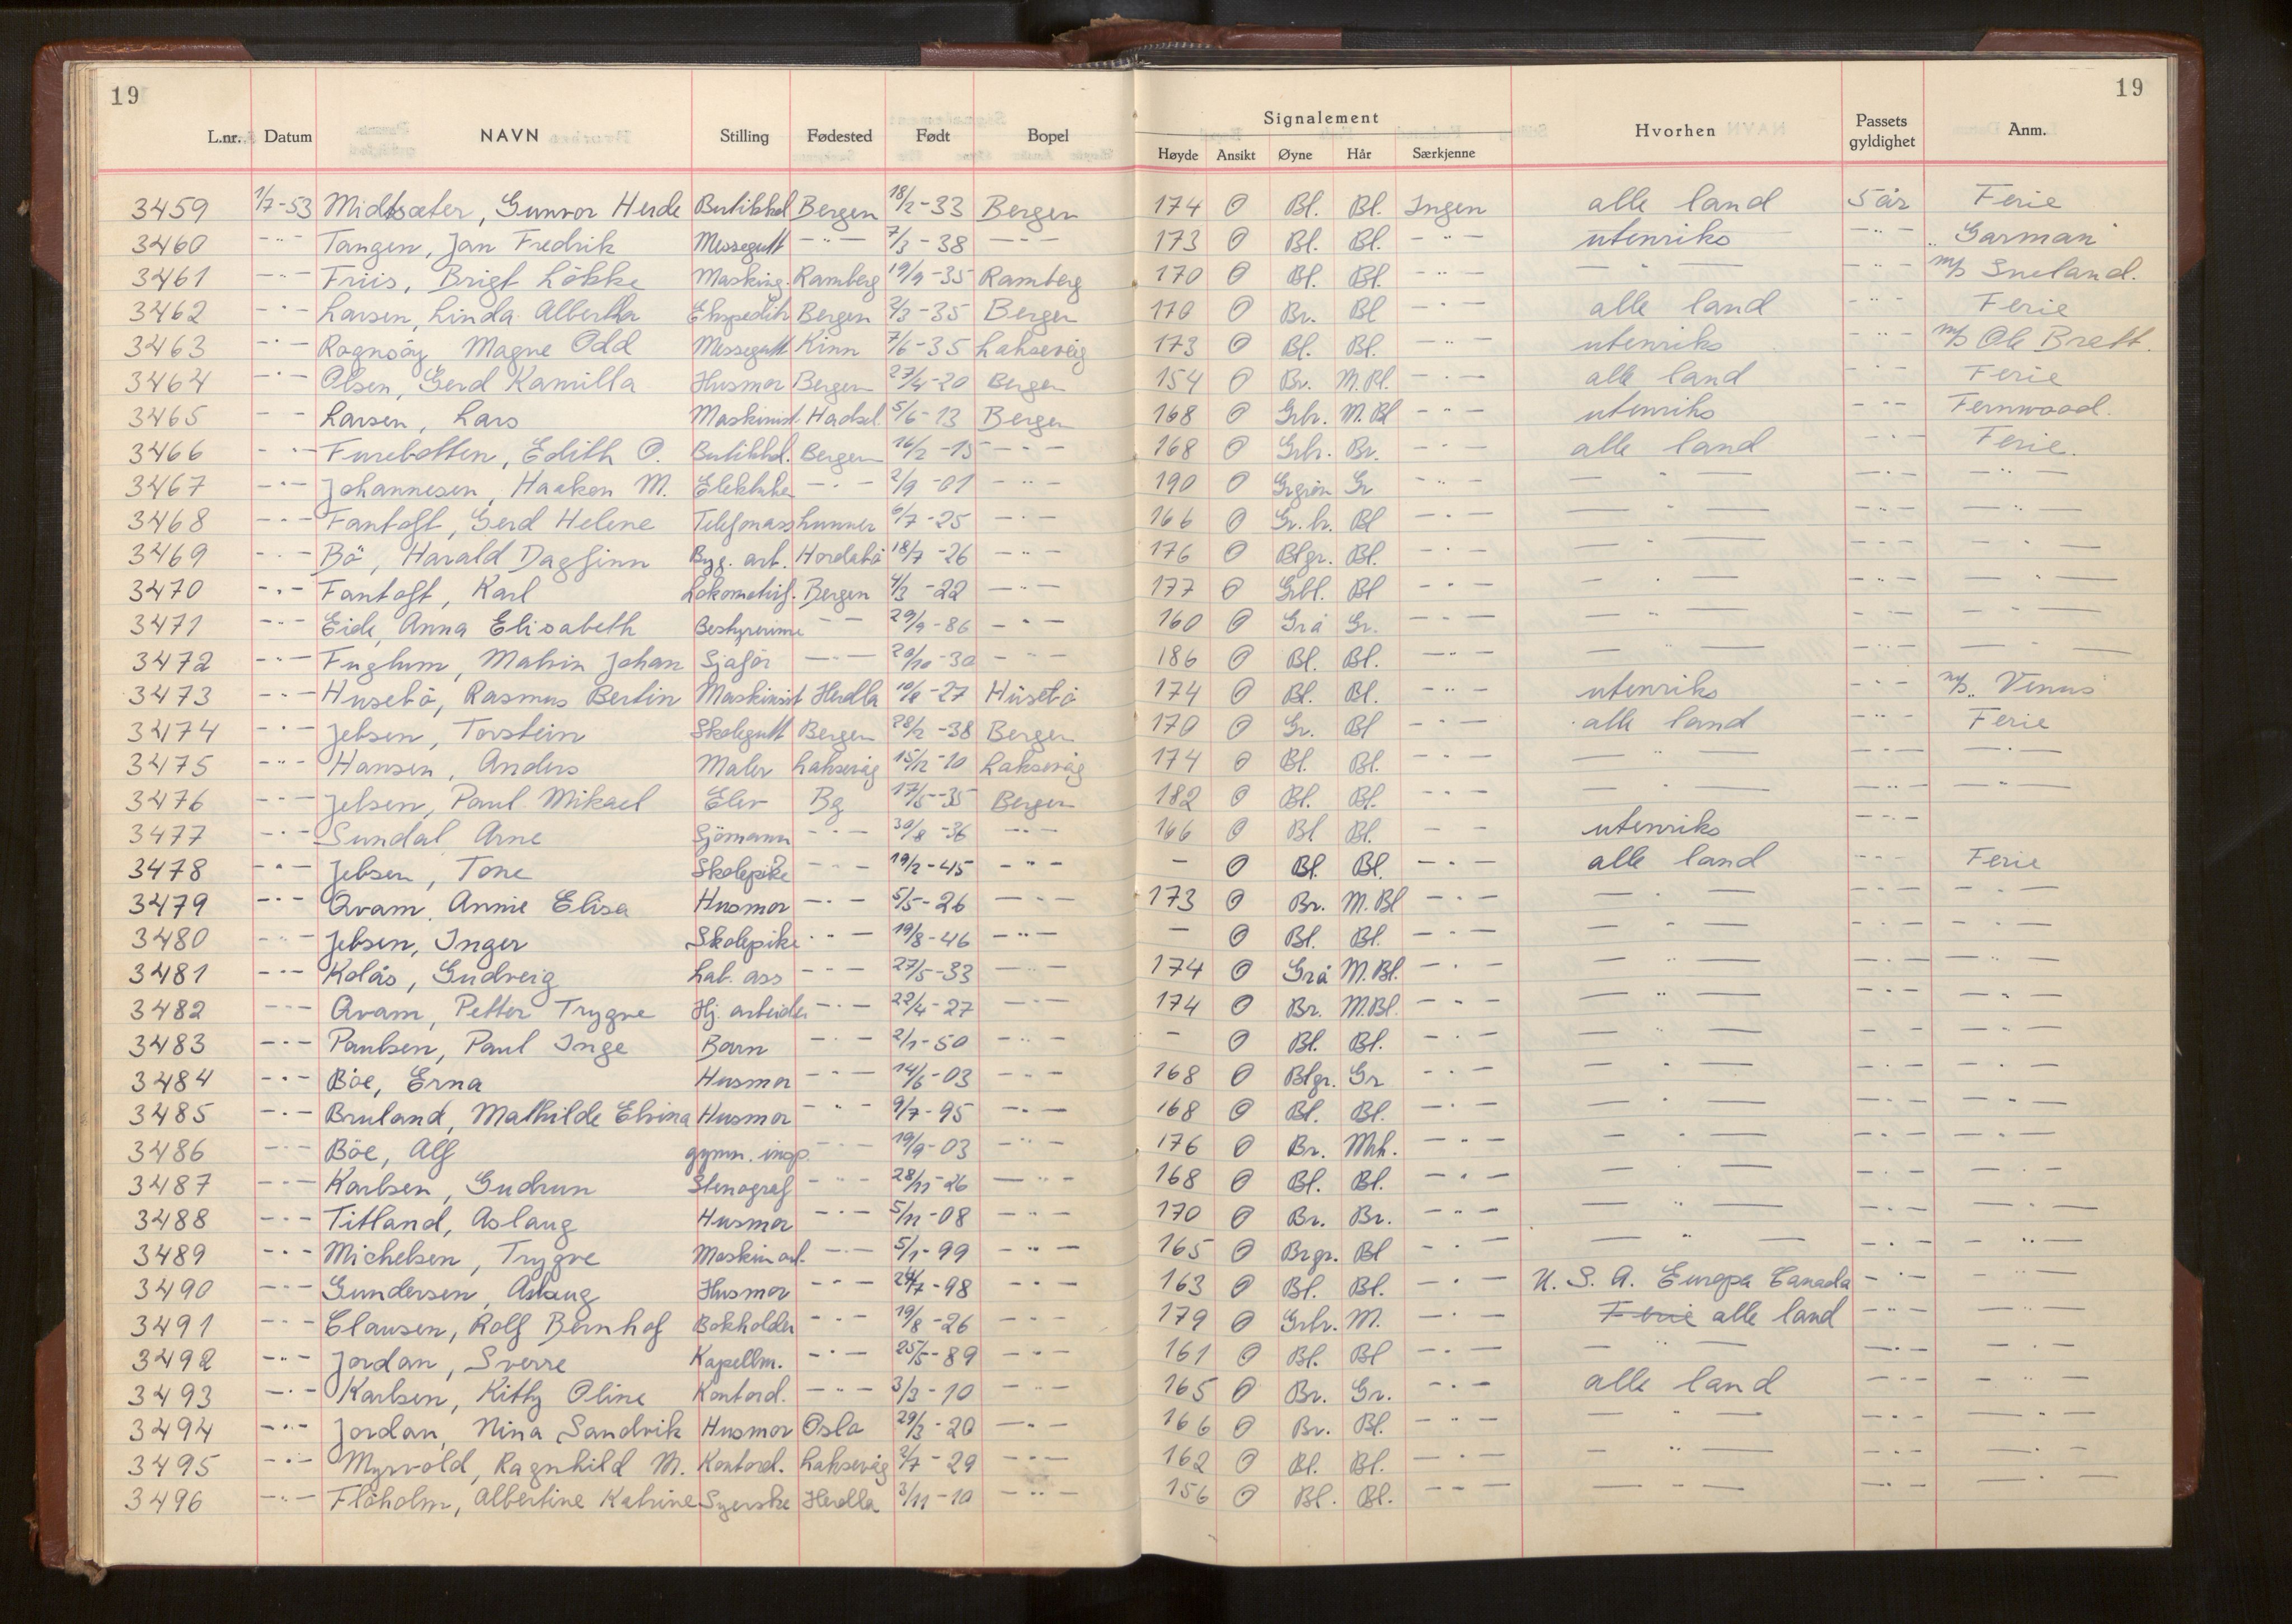 19
19
L.nr. Datum NAVN Stilling Fødested Født Bopel Signalement Hvorhen Passets gyldighet Anm.
Høyde Ansikt Øyne Hår Særkjenne
3459 1/7-53 Midtsæter, Gunvor Herde Butikkd. Bergen 18/2-33 Bergen 174 O Bl. Bl. Ingen alle land 5 år Ferie
3460 -"- Tangen, Jan Fredrik Messegutt -"- 7/3-38 -"- 173 O Bl. Bl. -"- utenriks -"- "Garman"
3461 -"- Friis, Brigt Løkke Masking. Ramberg 19/9-35 Ramberg 170 O Bl. Bl. -"- -"- -"- m/s Sneland.
3462 -"- Larsen, Linda Albertha Ekspeditr Bergen 2/3-35 Bergen 170 O Br. Bl -"- alle land -"- Ferie
3463 -"- Rognsøy Magne Odd Messegutt Kinn 7/6-35 Laksevåg 173 O Bl. Bl. -"- utenriks -"- m/s Ole Bratt.
3464 -"- Olsen, Gerd Kamilla Husmor Bergen 27/4-20 Bergen 154 O Br. M.Bl. -"- alle land -"- Ferie
3465 - - Larsen, Lars Maskinist Hadsel 5/6-13 Bergen 168 O Grbr. M.Bl -"- utenriks -"- Fernwood.
3466 -"- Furebotten, Edith O. Butikkd. Bergen 16/2-15 -"- 168 O Grbr. Br. -"- alle land -"- Ferie.
3467 -"- Johannesen, Haakon M. Elektriker -"- 2/9-01 -"- 190 O Grgrøn Gr -"- -"- -"- -"-
3468 -"- Fantoft, Gerd Helene Telefonass Lunner 6/7-25 -"- 166 O Gr.br. Bl -"- -"- -"- -"-
3469 -"- Bö, Harald Dagfinn Byg. arb. Hordabö 18/7-26 -"- 176 O Blgr. Bl. -"- -"- -"- -"-
3470 -"- Fantoft, Karl Lokomotivf. Bergen 4/3-22 -"- 177 O Grbl. Bl -"- -"- -"- -"-
3471 -"- Eide, Anna Elisabeth Bestyrerinne -"- 29/9-86 -"- 160 O Grå Gr. -"- -"- -"- -"-
3472 -"- Fuglum, Malvin Johan Sjåför -"- 20/10-30 -"- 186 O Bl. Bl. -"- -"- -"- -"-
3473 -"- Husebö, Rasmus Bertin Maskinist Herdla 10/8-27 Husebö 174 O Bl. Bl. -"- utenriks -"- m/s "Venus"
3474 -"- Jebsen, Torstein Skolegutt Bergen 28/2-38 Bergen 170 O Gr. Bl -"- alle land -"- Ferie
3475 -"- Hansen, Anders Maler Laksevåg 15/12-10 Laksevåg 174 O Bl. Bl. -"- -"- -"- -"-
3476 -"- Jebsen, Paul Mikael Elev Bg 17/5-35 Bergen 182 O Bl. Bl. -"- -"- -"- -"-
3477 -"- Sundal Arne Sjömann -"- 30/8-36 -"- 166 O Bl Bl. - - utenriks -"-
3478 -"- Jebsen, Tone Skolepike -"- 19/2-45 -"- - O Bl. Bl. -"- alle land -"- Ferie
3479 -"- Qvam, Annie Elisa Husmor -"- 5/5-26 -"- 173 O Br. M.Bl -"- -"- -"- -"-
3480 -"- Jebsen, Inger Skolepike -"- 19/8-46 -"- - O Bl. Bl. -"- -"- -"- -"-
3481 -"- Kolås, Gudveig Lab. ass -"- 27/5-33 -"- 174 O Grå M.Bl. -"- -"- -"- -"-
3482 -"- Qvam, Petter Trygve Hj. arbeider -"- 22/4-27 -"- 174 O Br. M.Bl. -"- -"- -"- -"-
3483 -"- Paulsen, Paul Inge Barn -"- 2/1-50 -"- - O Bl. Bl. -"- -"- - - -"-
3484 -"- Böe, Erna Husmor -"- 14/6-03 -"- 168 O Blgr. Gr -"- -"- -"- -"-
3485 -"- Bruland, Mathilde Elvina Husmor -"- 9/7-95 -"- 168 O Bl. Bl. -"- -"- -"- -"-
3486 -"- Böe, Alf gymn. insp. -"- 19/9-03 -"- 176 O Br. Mrk. -"- -"- -"- -"-
3487 -"- Karlsen, Gudrun Stenograf -"- 28/11-26 -"- 168 O Bl. Bl. -"- -"- -"- -"-
3488 -"- Titland, Aslaug Husmor -"- 5/11-08 -"- 170 O Br. Br. -"- -"- -"- -"-
3489 -"- Michelsen, Trygve Maskinarb. -"- 5/1-99 -"- 165 O Brgr. Bl -"- -"- -"- -"-
3490 -"- Gundersen, Aslaug Husmor -"- 24/7-98 -"- 163 O Bl. Bl. -"- U.S.A. Europa Canada -"- -"-
3491 -"- Clausen, Rolf Bernhof Bokholder -"- 19/8-26 -"- 179 O Grbr. M. -"- Ferie alle land -"- -"-
3492 -"- Jordan, Sverre Kapellm. -"- 25/5-89 -"- 161 O Bl. Bl -"- -"- -"- -"-
3493 -"- Karlsen, Kitty Oline Kontord. -"- 3/3-10 -"- 165 O Br. Gr. -"- alle land -"- -"-
3494 -"- Jordan, Nina Sandvik Husmor Oslo 29/3-20 -"- 166 O Br. Bl. -"- -"- -"- -"-
3495 -"- Myrvold, Ragnhild M. Kontord. Laksevåg 2/7-29 -"- 162 O Bl. Bl. -"- -"- -"- -"-
3496 -"- Flöholm, Albertine Katrine Syerske Herdla 3/11-10 -"- 156 O Bl. Bl. -"- -"- -"- -"-